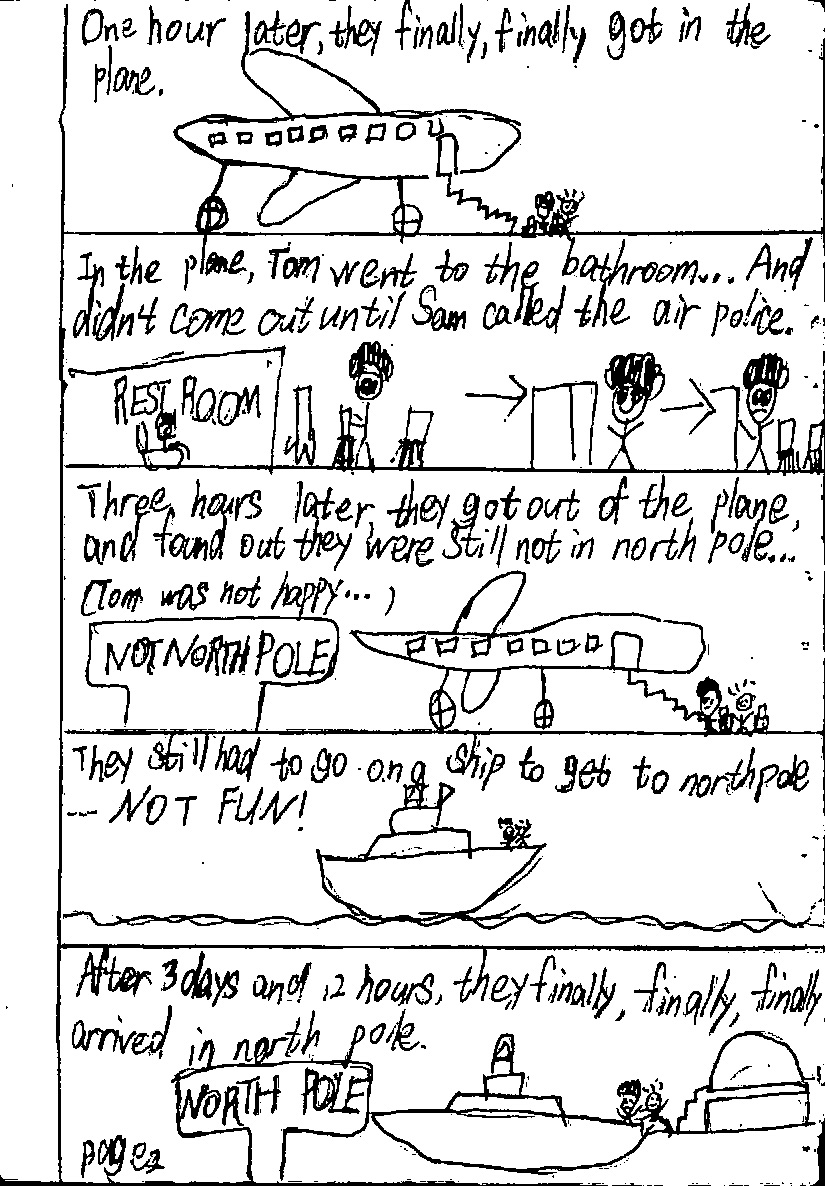 One hour later, they finally, finally got in the
plane.
In the plane, Tom went to the bathroom... And
didn't come out until Sam called the air police.
REST ROOM
Three hours later, they got out of the plane,
and found out they were still not in north pole...
(Tom was not happy...)
NOT NORTH POLE
They still had to go on a ship to get to northpole
-- NOT FUN!
After 3 days and 12 hours, they finally, finally, finally
arrived in north pole.
NORTH POLE
page 2